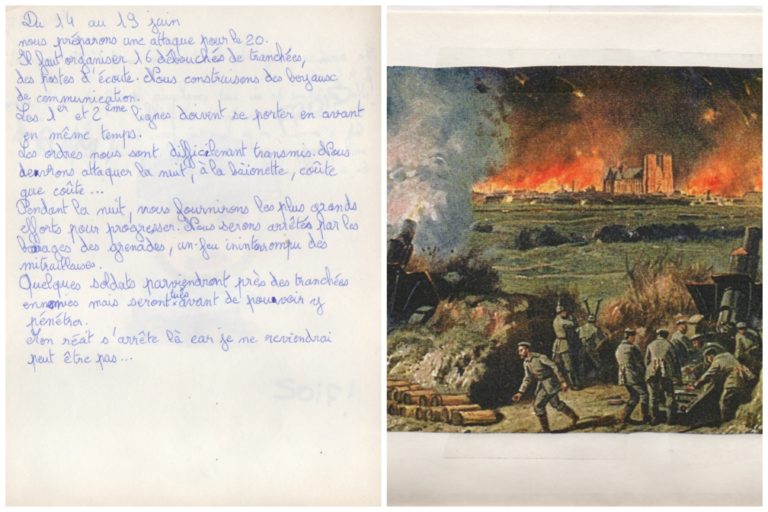 Du 14 au 19 juin
nous préparons une attaque pour le 20.
Il faut organiser 16 débouchés de tranchées,
des postes d'écoute. Nous construisons des boyaux
de communication.
Les 1er et 2ème lignes doivent se porter en avant
en même temps.
Les ordres nous sont difficilement transmis. Nous
devrons attaquer la nuit, à la baïonette, coûte
que coûte...
Pendant la nuit, nous fournirons les plus grands
efforts pour progresser. Nous serons arrêtés par les
barrages des grenades, un feu ininterrompu des
mitrailleuses.
Quelques soldats parviendront près des tranchées
ennemies mais seront tués avant de pouvoir y
pénétrer.
Mon récit s'arrête là car je ne reviendrai
peut être pas...